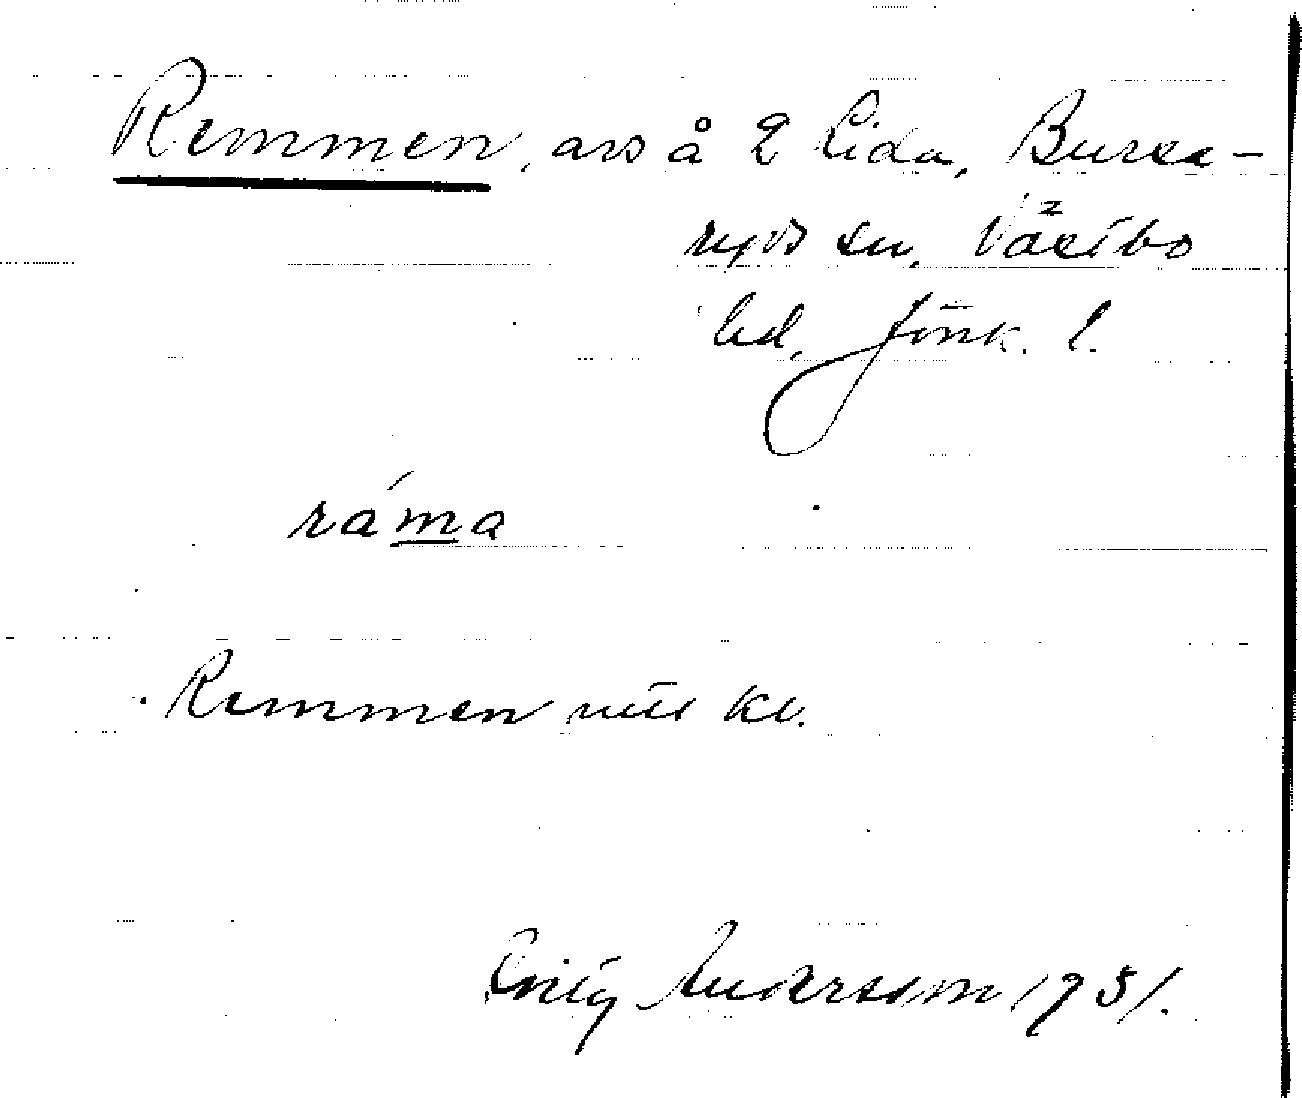 Remmen, avs å 2 Lida, Bursa-
ryds sn, Västbo
hd, Jönk. l.
ráma
Remmen kv.
Emily Andersson 1931.